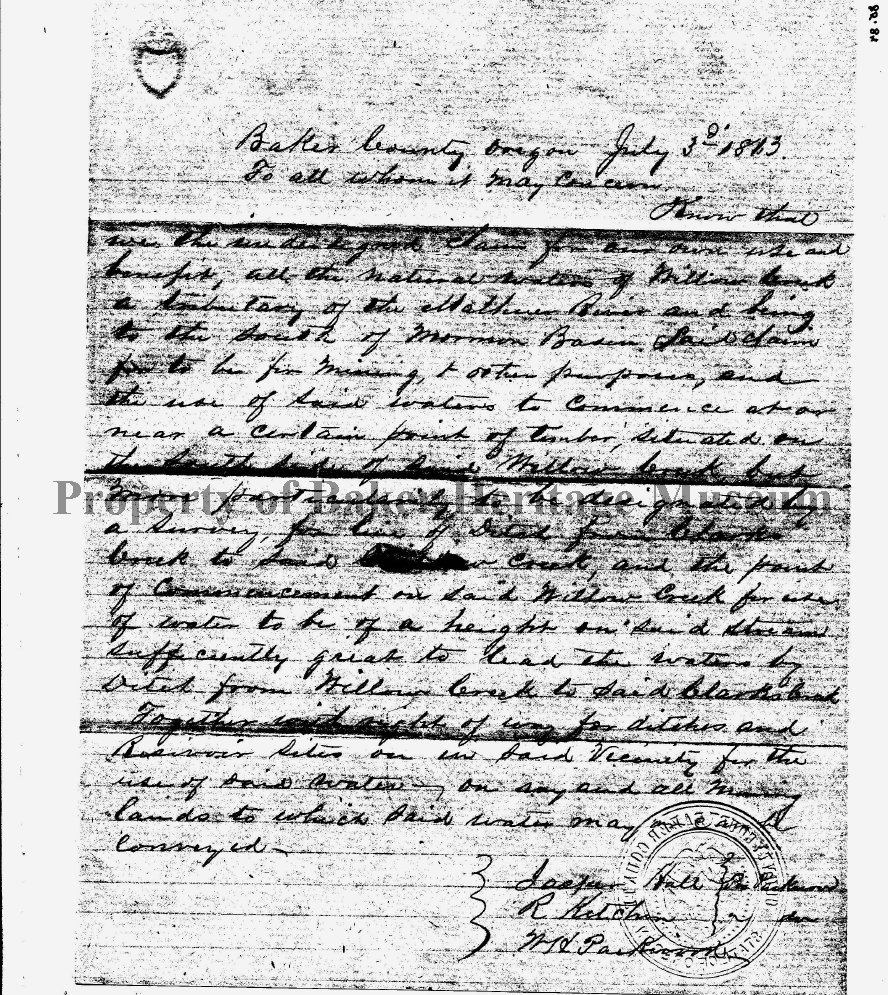 Baker County, Oregon July 3d 1863.
To all whom it May Concern
Know that
we, the undersigned claim for our own use and
benefit, all the natural waters of Willow Creek
a tributary of the Malheur River and being
to the South of Mormon Basin Said claim
for to be for Mining, & other purposes, and
the use of Said waters to Commence at or
near a certain point of timber, situated on
the South side of said Willow Creek but
more particularly to be designated by
a Survey, for line of Ditch from Clarks
Creek to Said Creek, and the point
of Commencement on Said Willow Creek for use
of water to be of a height on said stream
sufficiently great to lead the waters by
Ditch from Willow Creek to Said Clarks Creek
Together with right of way for ditches and
Reservoir Sites on in Said Vicinity for the
use of said water, on any and all Mining
lands to which Said water may
Conveyed
Hall Packwood
R Kitchin
WH Packwood
Property of Baker Heritage Museum